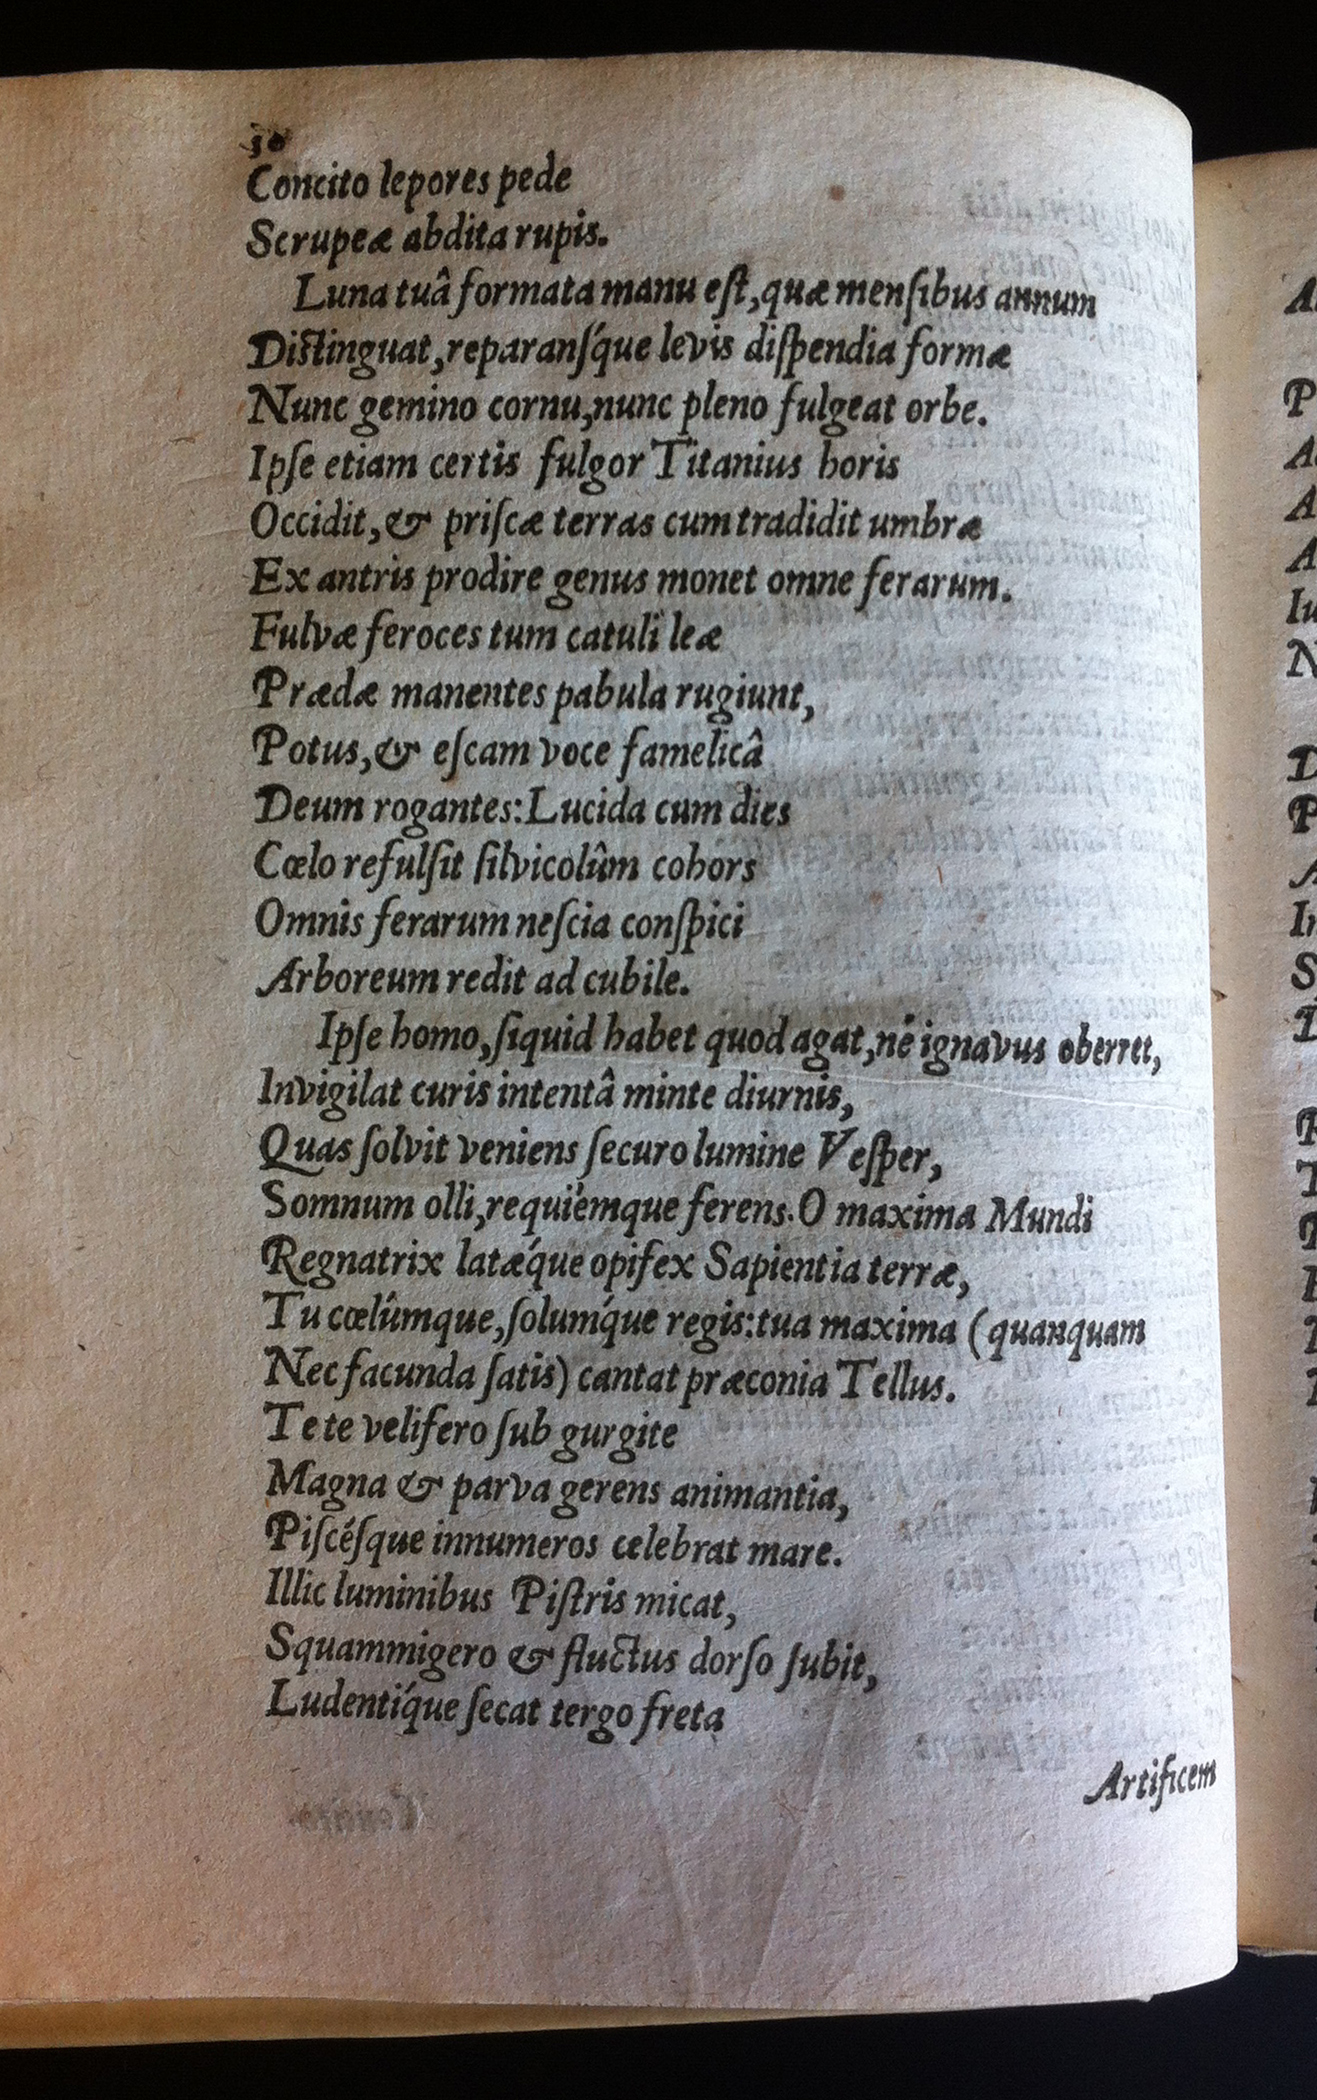 30
Concito lepores pede
Scrupeæ abdita rupis.
Luna tuâ formata manu eſt, quæ menſibus annum
Diſtinguat, reparanſq́ue levis diſpendia formæ
Nunc gemino cornu, nunc pleno fulgeat orbe.
Ipſe etiam certis fulgor Titanius horis
Occidit, & priſcæ terras cum tradidit umbræ
Ex antris prodire genus monet omne ferarum.
Fulvæ feroces tum catuli leæ
Prædæ manentes pabula rugiunt,
Potus, & eſcam voce famelicâ
Deum rogantes: Lucida cum dies
Cœlo refulſit ſilvicolûm cohors
Omnis ferarum neſcia conſpici
Arboreum redit ad cubile.
Ipſe homo, ſiquid habet quod agat, né ignavus oberret,
Invigilat curis intentâ minte diurnis,
Quas ſolvit veniens ſecuro lumine Veſper,
Somnum olli, requiémque ferens. O maxima Mundi
Regnatrix latæq́ue opifex Sapientia terræ,
Tu cœlúmque, ſolumq́ue regis: tua maxima (quanquam
Nec facunda ſatis) cantat præconia Tellus.
Te te veliſero ſub gurgite
Magna & parva gerens animantia,
Piſcéſque innumeros celebrat mare.
Illic luminibus Piſtris micat,
Squammigero & fluctus dorſo ſubit,
Ludentiq́ue ſecat tergo freta
Artificem